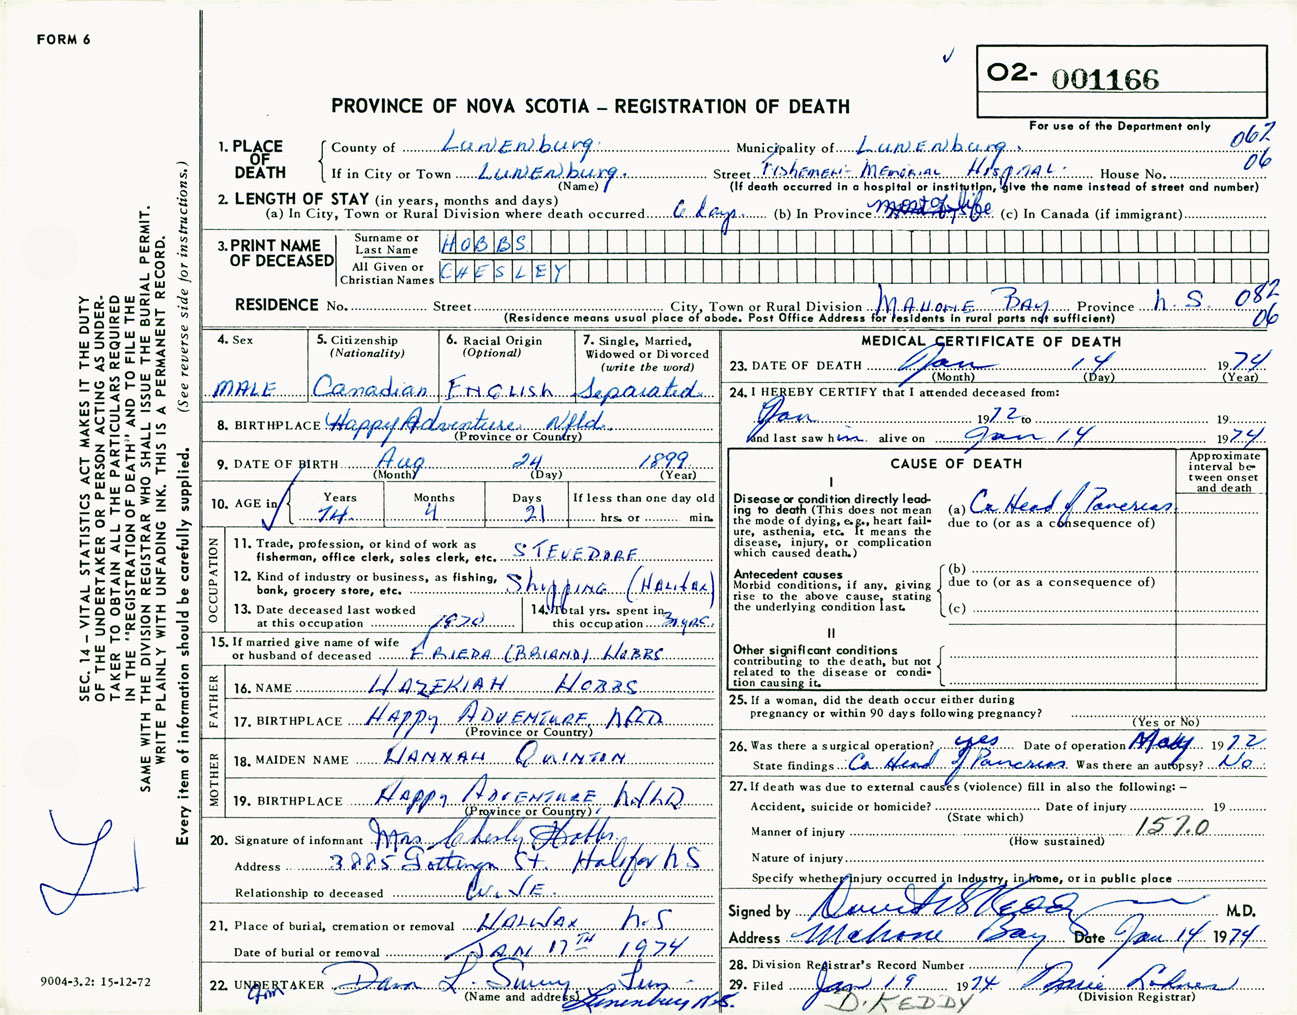 FORM 6
O2- 001166
PROVINCE OF NOVA SCOTIA – REGISTRATION OF DEATH
For use of the Department only
062
06
1. PLACE OF DEATH
County of Lunenburg. Municipality of Lunenburg.
If in City or Town Lunenburg. Street Fishemen's Memorial Hospital. House No.
(Name) (If death occurred in a hospital or institution, give the name instead of street and number)
2. LENGTH OF STAY (in years, months and days)
(a) In City, Town or Rural Division where death occurred 6 days (b) In Province most of life (c) In Canada (if immigrant)
3. PRINT NAME OF DECEASED
Surname or Last Name HOBBS
All Given or Christian Names CHESLEY
RESIDENCE No. Street City, Town or Rural Division Mahone Bay Province N.S. 082
06
(Residence means usual place of abode. Post Office Address for residents in rural parts not sufficient)
4. Sex
MALE
5. Citizenship
(Nationality)
Canadian
6. Racial Origin
(Optional)
English
7. Single, Married,
Widowed or Divorced
(write the word)
Separated
8. BIRTHPLACE Happy Adventure Nfld.
(Province or Country)
9. DATE OF BIRTH Aug 24 1899
(Month) (Day) (Year)
10. AGE in
Years Months Days If less than one day old
74 4 21 hrs. or min.
OCCUPATION
11. Trade, profession, or kind of work as
fisherman, office clerk, sales clerk, etc. STEVEDORE
12. Kind of industry or business, as fishing,
bank, grocery store, etc. Shipping (Halifax)
13. Date deceased last worked
at this occupation 1970
14. Total yrs. spent in
this occupation 30 yrs.
15. If married give name of wife
or husband of deceased FRIEDA (BRIAND) HOBBS
FATHER
16. NAME HAZEKIAH HOBBS
17. BIRTHPLACE HAPPY ADVENTURE, NFLD
(Province or Country)
MOTHER
18. MAIDEN NAME HANNAH QUINTON
19. BIRTHPLACE HAPPY ADVENTURE NFLD
(Province or Country)
20. Signature of informant Mrs Chesley Hobbs
Address 3885 Gottingen St. Halifax NS
Relationship to deceased WIFE.
21. Place of burial, cremation or removal HALIFAX N.S
Date of burial or removal JAN 17TH 1974
22. UNDERTAKER
(Name and address) Lunenburg N.S.
MEDICAL CERTIFICATE OF DEATH
23. DATE OF DEATH Jan 14 1974
(Month) (Day) (Year)
24. I HEREBY CERTIFY that I attended deceased from:
Jan 1972 to 19
and last saw him alive on Jan 14 1974
CAUSE OF DEATH
Approximate
interval be-
tween onset
and death
I
Disease or condition directly lead-
ing to death (This does not mean
the mode of dying, e.g., heart fail-
ure, asthenia, etc. It means the
disease, injury, or complication
which caused death.)
(a) Ca Head of Pancreas
due to (or as a consequence of)
Antecedent causes
Morbid conditions, if any, giving
rise to the above cause, stating
the underlying condition last.
(b)
due to (or as a consequence of)
(c)
II
Other significant conditions
contributing to the death, but not
related to the disease or condi-
tion causing it.
25. If a woman, did the death occur either during
pregnancy or within 90 days following pregnancy?
(Yes or No)
26. Was there a surgical operation? yes Date of operation May 1972
State findings Ca Head of Pancreas Was there an autopsy? No
27. If death was due to external causes (violence) fill in also the following: –
Accident, suicide or homicide? Date of injury 19
(State which)
Manner of injury 157.0
(How sustained)
Nature of injury
Specify whether injury occurred in industry, in home, or in public place
Signed by M.D.
Address Mahone Bay Date Jan 14 1974
28. Division Registrar's Record Number
29. Filed Jan 19 1974
(Division Registrar)
D. KEDDY
SEC. 14 – VITAL STATISTICS ACT MAKES IT THE DUTY
OF THE UNDERTAKER OR PERSON ACTING AS UNDER-
TAKER TO OBTAIN ALL THE PARTICULARS REQUIRED
IN THE "REGISTRATION OF DEATH" AND TO FILE THE
SAME WITH THE DIVISION REGISTRAR WHO SHALL ISSUE THE BURIAL PERMIT.
WRITE PLAINLY WITH UNFADING INK. THIS IS A PERMANENT RECORD.
Every item of information should be carefully supplied. (See reverse side for instructions.)
9004-3.2: 15-12-72